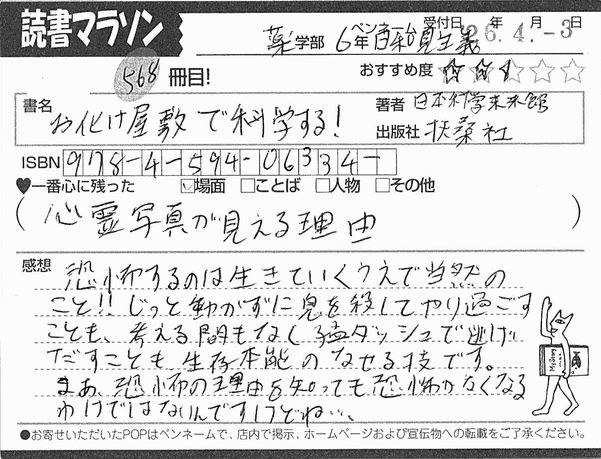 読書マラソン
受付日 26年4.月-3日
薬学部 6年 ペンネーム 日和見主義
568冊目!
おすすめ度 ★★★☆☆
書名
お化け屋敷で科学する!
著者 日本科学未来館
出版社 扶桑社
ISBN 978-4-594-06334-
♥一番心に残った ☑場面 □ことば □人物 □その他
(心霊写真が見える理由)
感想
恐怖するのは生きていくうえで当然の
こと!! じっと動かずに息を殺してやり過ごす
ことも、考える間もなく猛ダッシュで逃げ
だすことも生存本能のなせる技です。
まあ、恐怖の理由を知っても恐怖がなくなる
わけではないんですけどね…、
●お寄せいただいたPOPはペンネームで、店内で掲示、ホームページおよび宣伝物への転載をご了承ください。